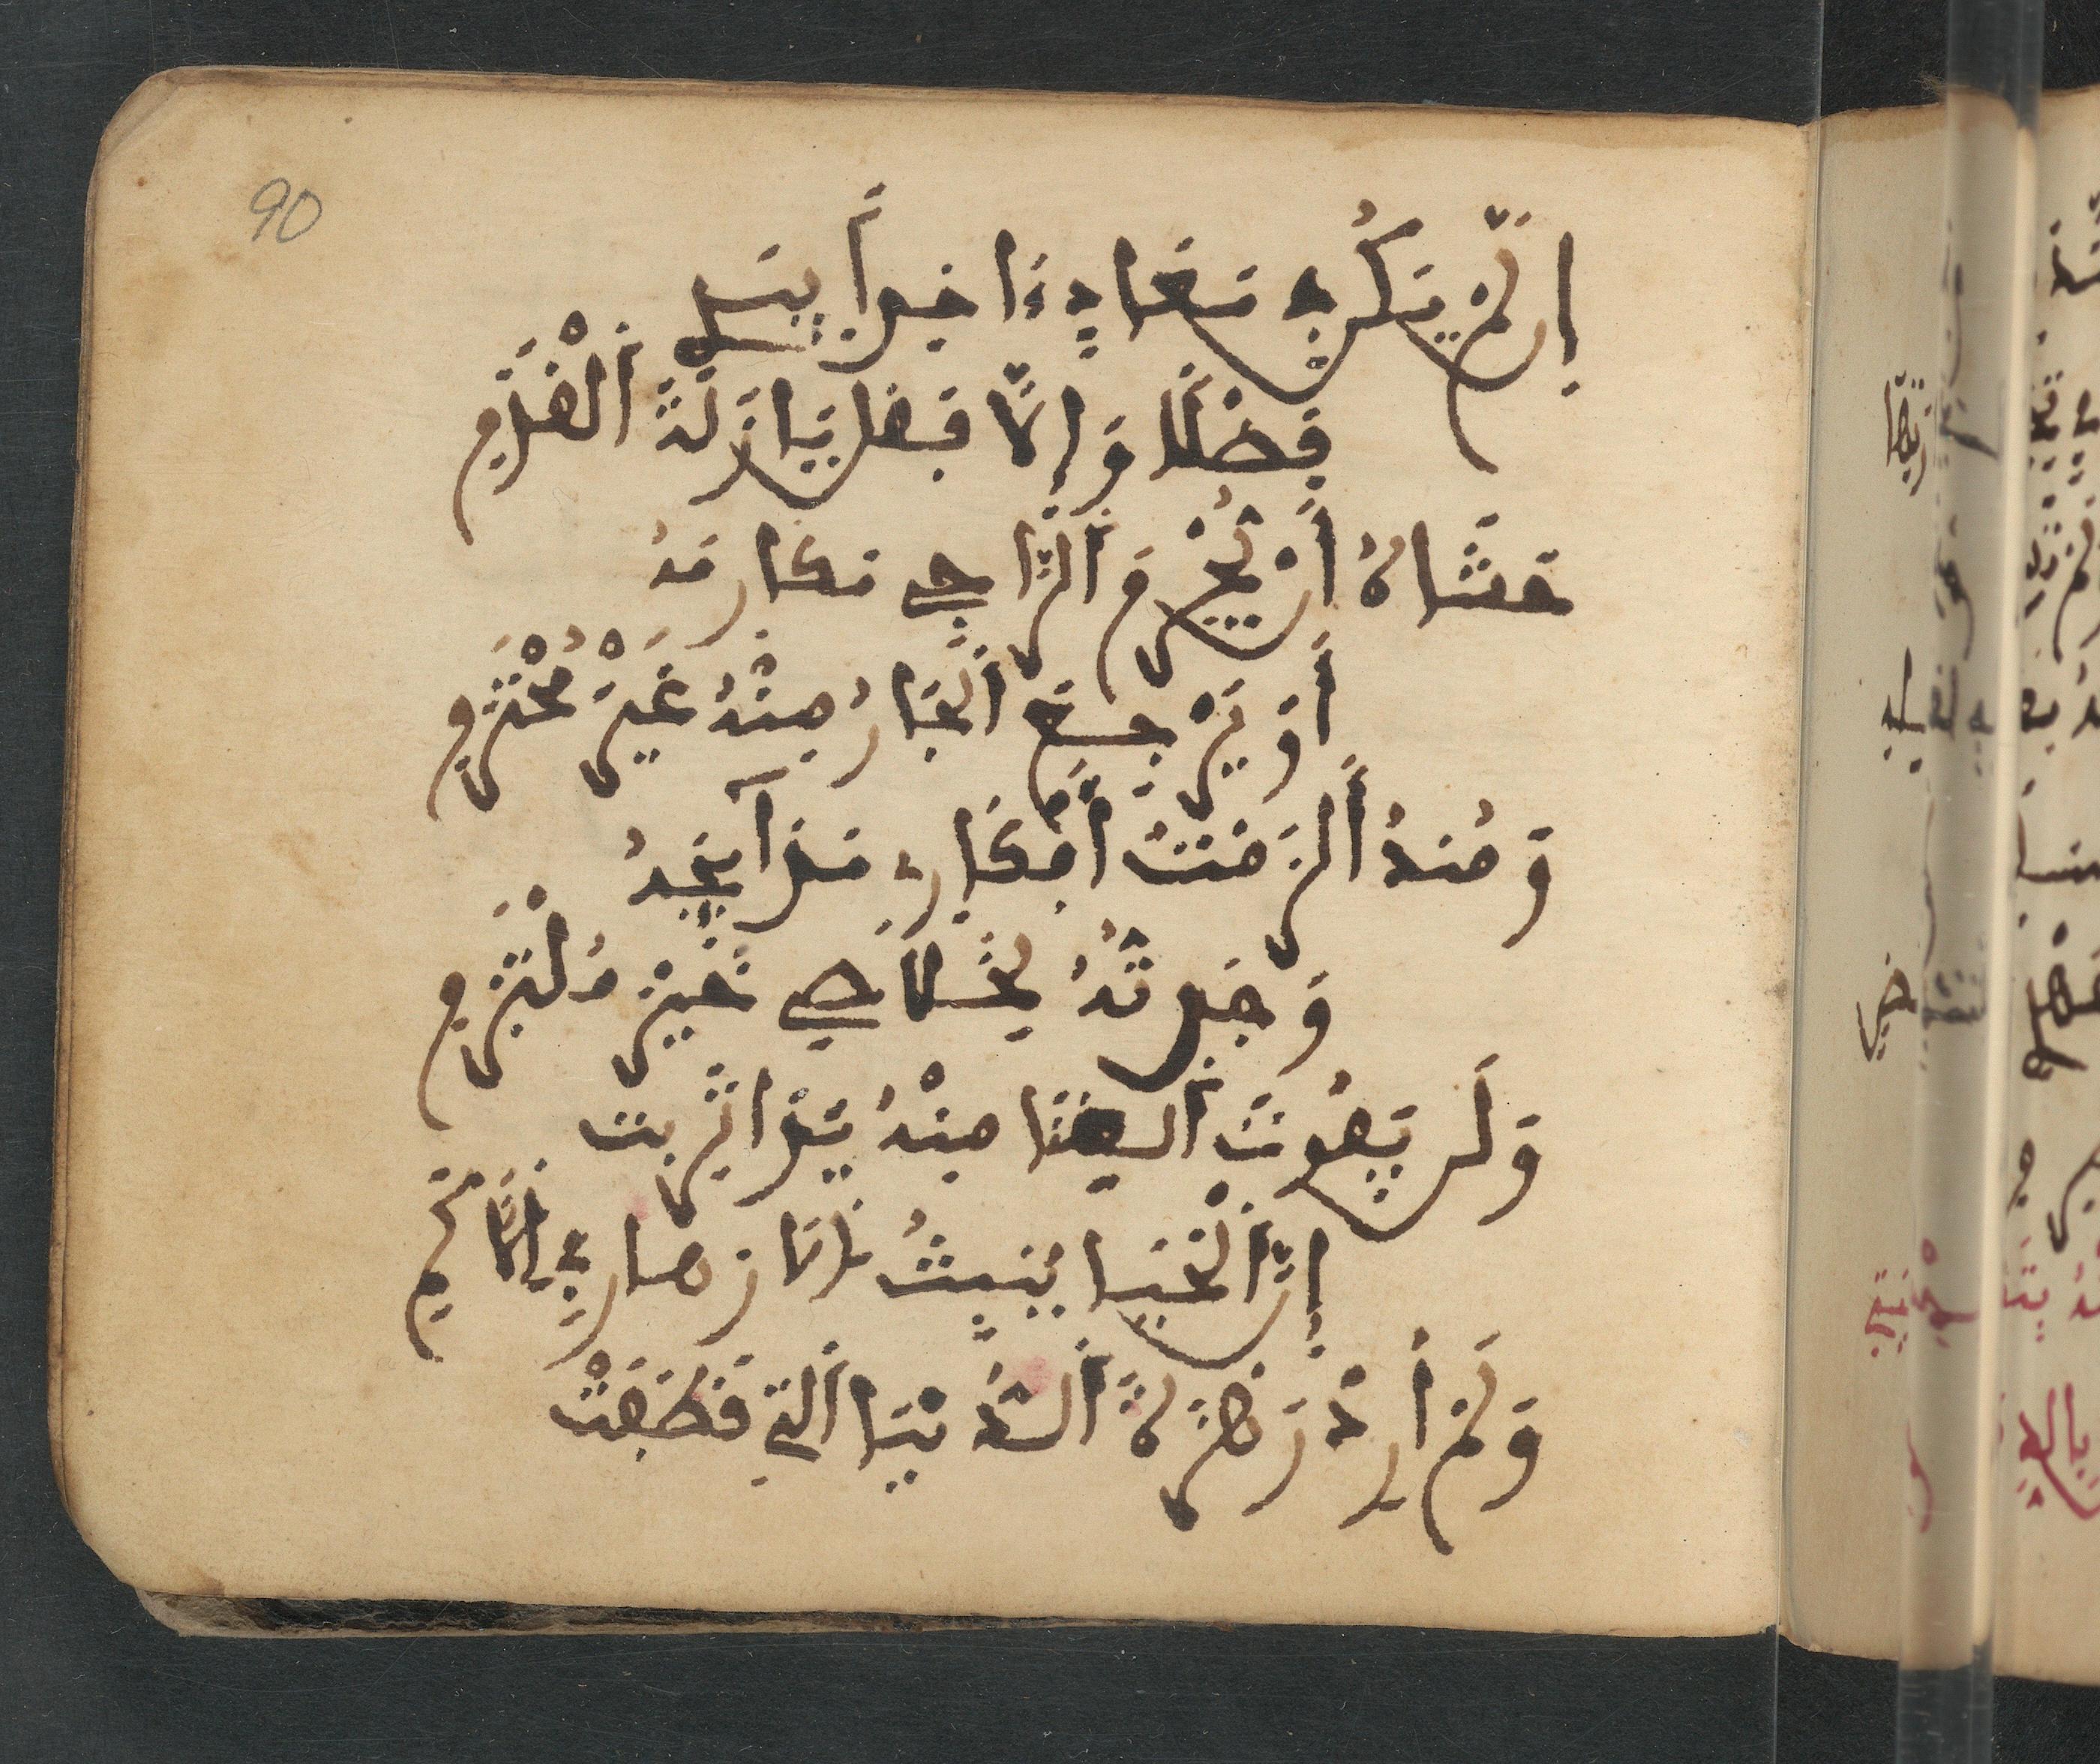 90
إِن لَّمْ يَكُن فِي مَعَادِي ءَاخِذاً بِيَدِي
فَضْلًا وَإِلَّا فَقُل يَا زَلَّةَ اَلْقَدَمِ
حَاشَاهُ أَنْ يُحْرِمَ اَلرَّاجِي مَكَارِمَهُ
أَوْ يَرْجِعَ اَلْجَارُ مِنْهُ غَيْرَ مُحْتَرَمِ
وَمُنذُ أَلْزَمْتُ أَفْكَارِي مَدَآئِحَهُ
وَجَدتُّهُ لِخَلَاصِي خَيْرَ مُلْتَزِمِ
وَلَن يَفُوتَ اَلْغِنَا مِنْهُ يَداً تَرِبَت
إِنَّ اَلْحَيَا يُنْبِتُ اَلَازْهَارَ فِي اَلَاكَمِ
وَلَمْ أُرِدْ زَهْرَةَ اَلدُّنْيَا اَلَّتِي قَطَفَتْ